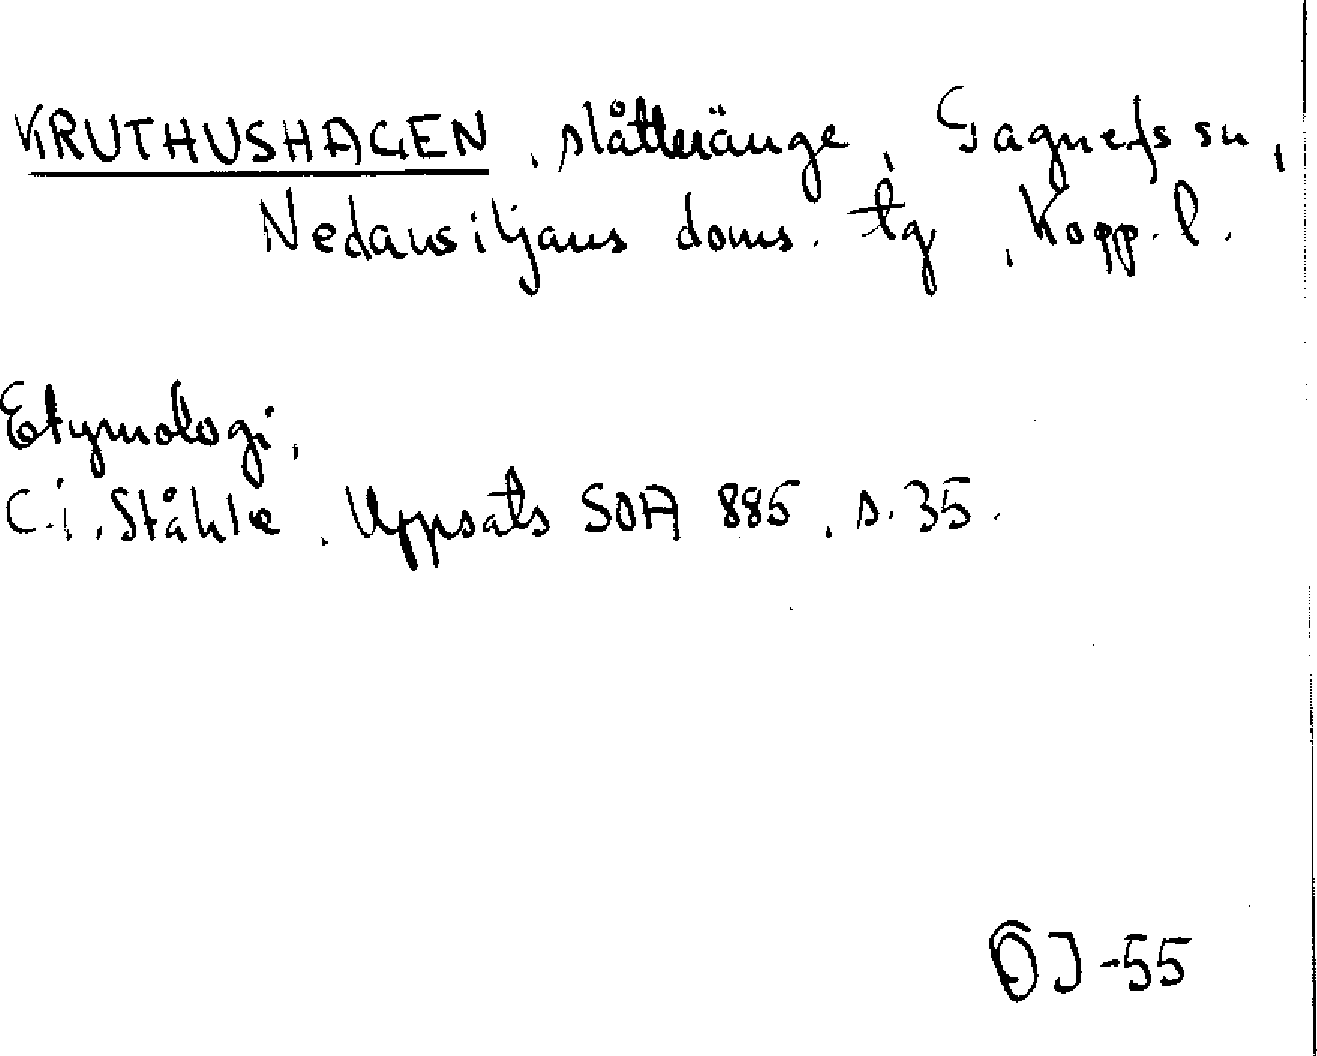 KRUTHUSHAGEN, slåtteränge, Gagnefs sn,
Nedansiljans doms. tg, Kopp. l.
Etymologi.
C.i. Ståhle. Uppsats SOA 885, s. 35.
ÖJ-55